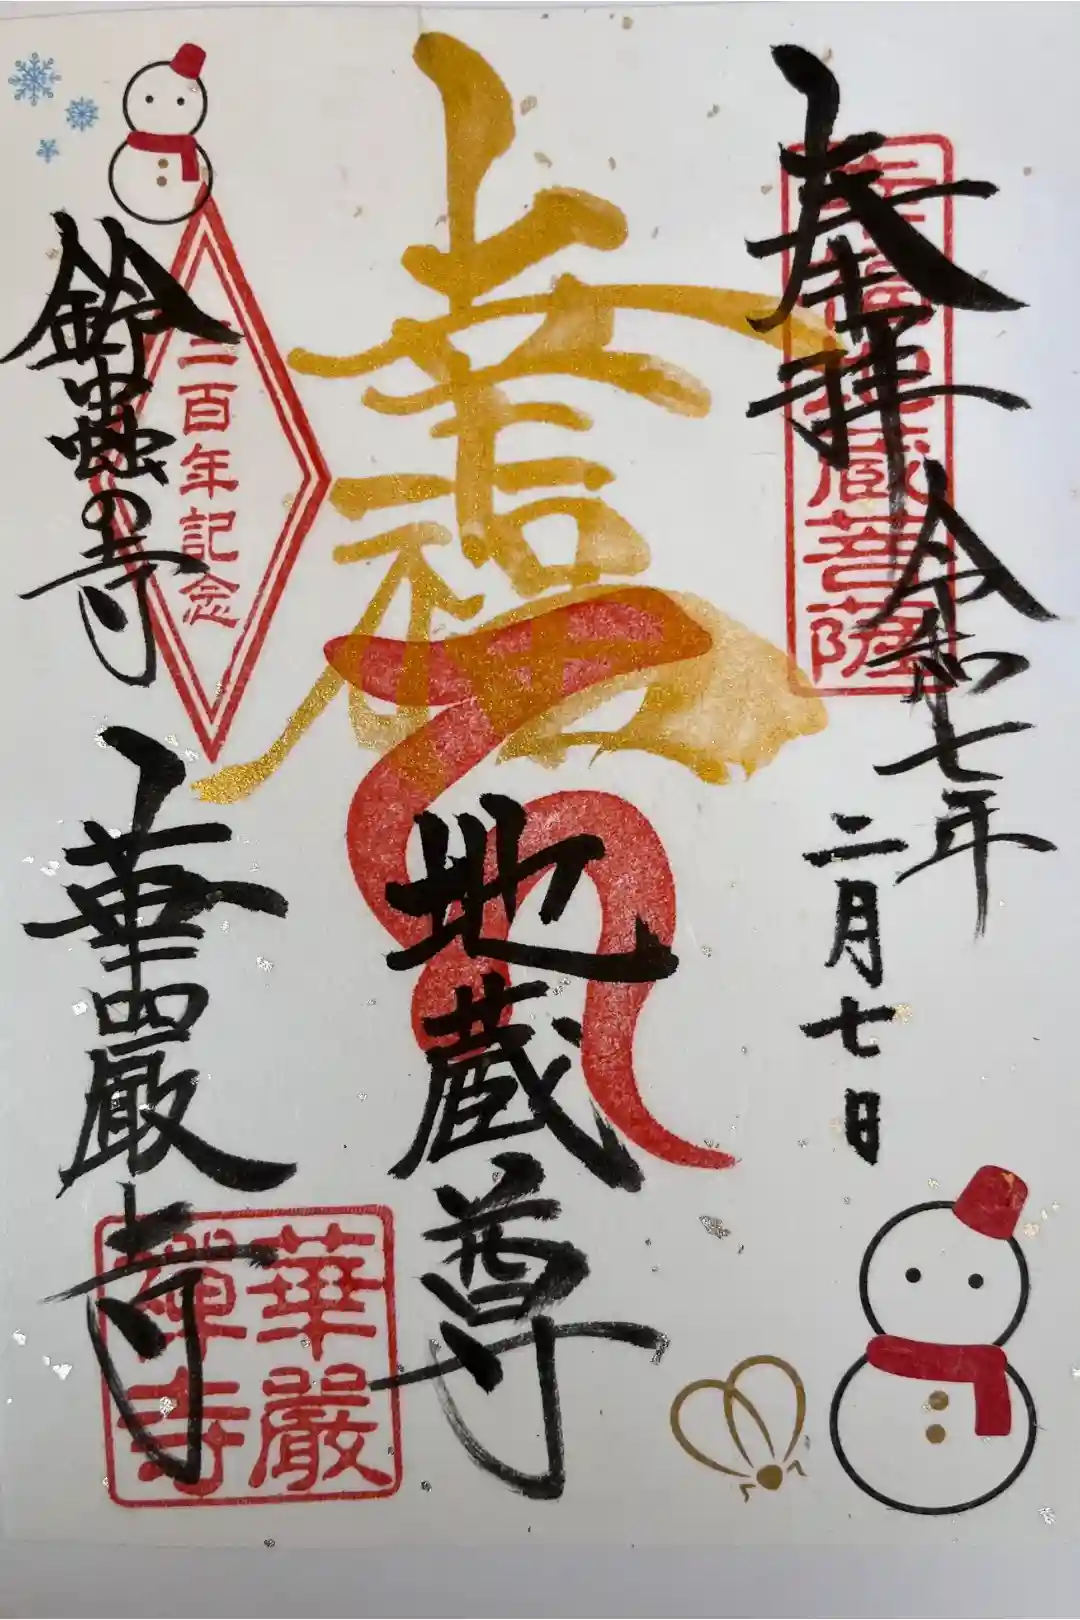 奉拝
幸福地蔵菩薩
令和七年
二月七日
幸福
地蔵尊
鈴虫の寺
三百年記念
華厳寺
華嚴
禅寺